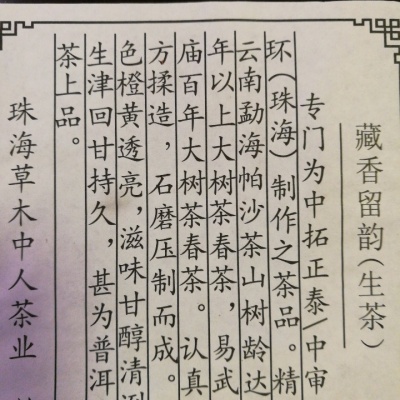 藏香留韵(生茶)
专门为中拓正泰/中审
环(珠海)制作之茶品。精
云南勐海帕沙茶山树龄达
年以上大树茶春茶，易武
庙百年大树茶春茶。认真
方揉造，石磨压制而成。
色橙黄透亮，滋味甘醇清
生津回甘持久，甚为普洱
茶上品。
珠海草木中人茶业